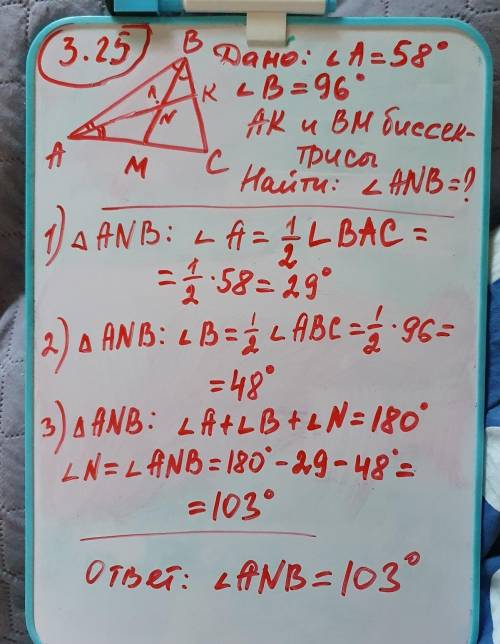 3.25
Дано: ∠A = 58°
∠B = 96°
AK и BM биссек-
трисы
Найти: ∠ANB = ?
B
K
N
A
M
C
1) △ANB: ∠A = 1/2 ∠BAC =
= 1/2 · 58 = 29°
2) △ANB: ∠B = 1/2 ∠ABC = 1/2 · 96 =
= 48°
3) △ANB: ∠A + ∠B + ∠N = 180°
∠N = ∠ANB = 180° - 29 - 48° =
= 103°
Ответ: ∠ANB = 103°